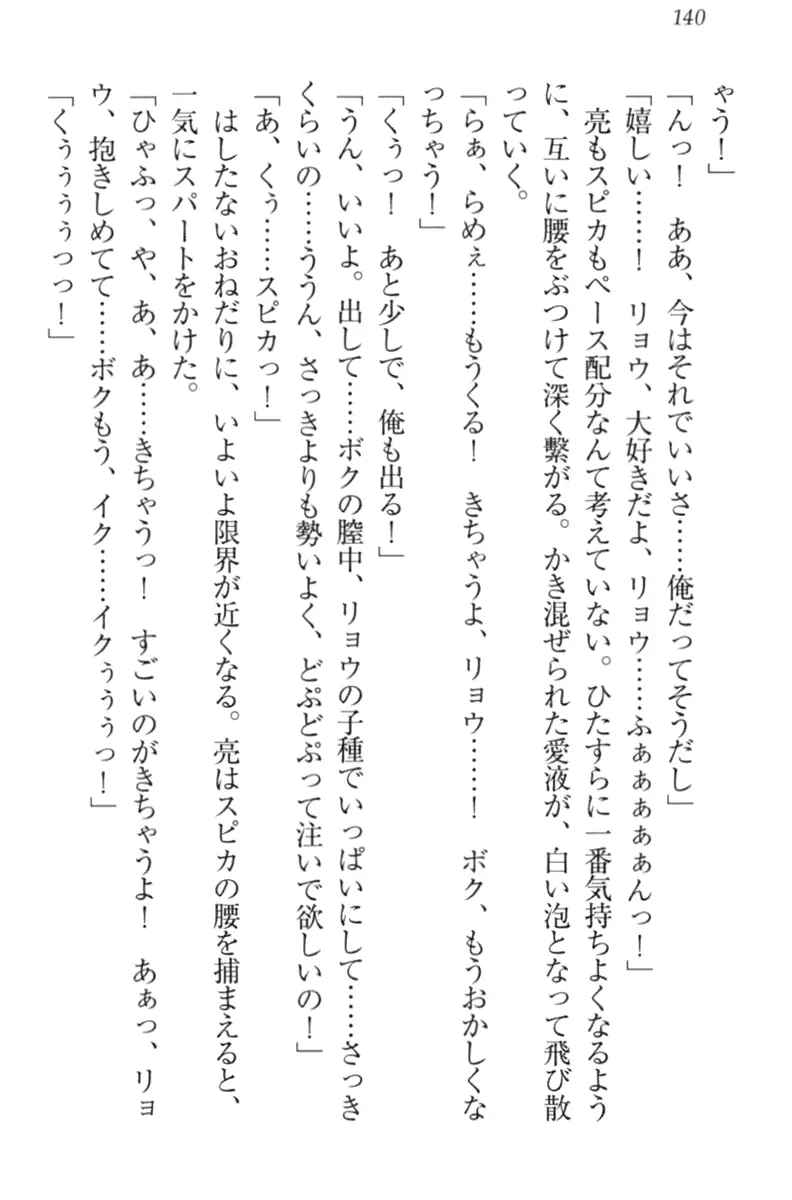 140
ゃう！」
「んっ！　ああ、今はそれでいいさ……俺だってそうだし」
「嬉しい……！　リョウ、大好きだよ、リョウ……ふぁぁぁぁぁんっ！」
　亮もスピカもペース配分なんて考えていない。ひたすらに一番気持ちよくなるよう
に、互いに腰をぶつけて深く繋がる。かき混ぜられた愛液が、白い泡となって飛び散
っていく。
「らぁ、らめぇ……もうくる！　きちゃうよ、リョウ……！　ボク、もうおかしくな
っちゃう！」
「くぅっ！　あと少しで、俺も出る！」
「うん、いいよ。出して……ボクの膣中、リョウの子種でいっぱいにして……さっき
くらいの……ううん、さっきよりも勢いよく、どぷどぷって注いで欲しいの！」
「あ、くぅ……スピカっ！」
　はしたないおねだりに、いよいよ限界が近くなる。亮はスピカの腰を捕まえると、
一気にスパートをかけた。
「ひゃふっ、や、あ、あ……きちゃうっ！　すごいのがきちゃうよ！　あぁっ、リョ
ウ、抱きしめてて……ボクもう、イク……イクぅぅぅっ！」
「くぅぅぅぅっっ！」